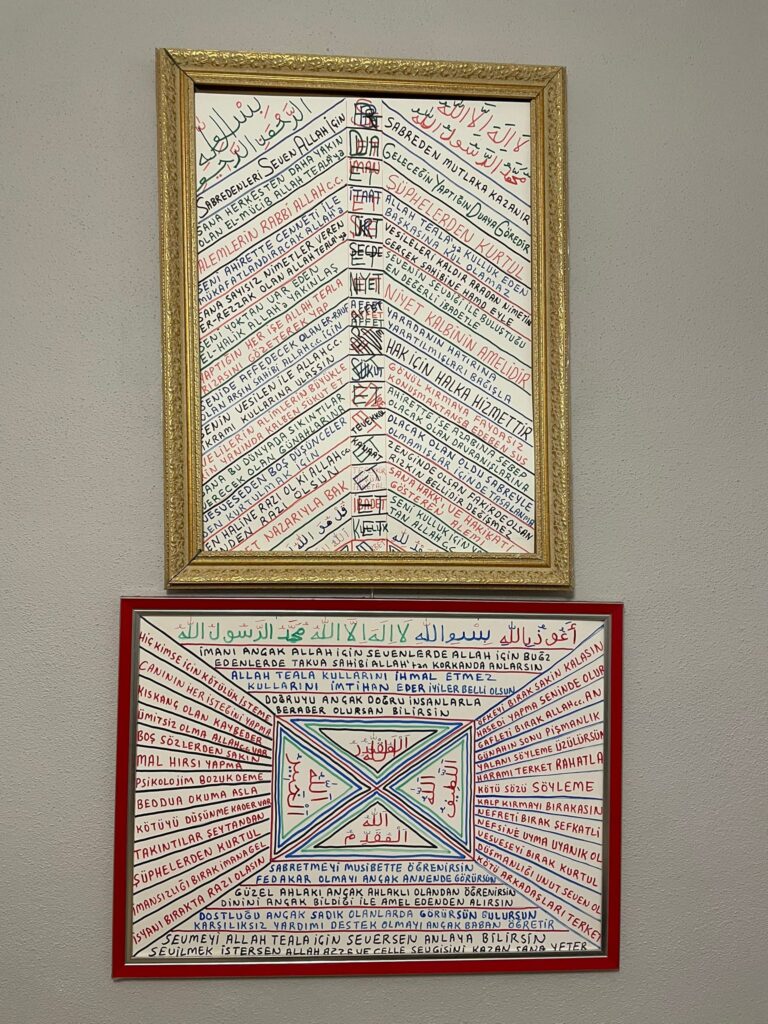 بسم الله
الرحمن الرحيم
لا اله الا الله
محمد الرسول الله
SABREDENLERİ SEVEN ALLAH İÇİN
SABREDEN MUTLAKA KAZANIR
SANA HERKESTEN DAHA YAKIN
OLAN EL-MÜCİB ALLAH TEALA'YA
DUA
ET
GELECEĞİN YAPTIĞIN DUAYA GÖREDİR
ALEMLERİN RABBİ ALLAH C.C.
İMAN
ET
ŞÜPHELERDEN KURTUL
SENİ AHİRETTE CENNETİ İLE
MÜKAFATLANDIRACAK ALLAH'A
İTAAT
ET
ALLAH TEALA'YA KULLUK EDEN
BAŞKASINA KUL OLAMAZ
SANA SAYISIZ NİMETLER VEREN
ER-REZZAK OLAN ALLAH TEALA'YA
ET
VESİLELERİ KALDIR ARADAN NİMETİN
GERÇEK SAHİBİNE HAMD EYLE
SENİ YOKTAN VAR EDEN
EL-HALİK ALLAH'A YAKINLAŞ
SECDE
ET
SEVENİN SEVDİĞİ İLE BULUŞTUĞU
EN DEĞERLİ İBADETLE
YAPTIĞIN HER İŞE ALLAH TEALA
RIZASINI GÖZETEREK YAP
NİYET
NİYET KALBİNİN AMELİDİR
SENİDE AFFEDECEK OLAN ER-RAUF
OLAN ARŞIN SAHİBİ ALLAH C.C. İÇİN
AFFET
AFFET
YARADANIN HATIRINA
YARATILMIŞLARI BAĞIŞLA
SENİN VESİLEN İLE ALLAH C.C
İKRAMI KULLARINA ULAŞSIN
HAK İÇİN HALKA HİZMETTİR
VELİLERİN ALİMLERİN BÜYÜKLE
İN YANINDA KALBEN SÜKUT ET
SÜKUT
GÖNÜL KIRMAYA FAYDASIZ
KONUŞMAKTANSA EDEBEN SUS
SANA BU DÜNYADA SIKINTILAR
VERECEK OLAN GÜNAHLARINA
ET
AHİRETTE İSE AZABINA SEBEB
OLACAK OLAN DAVRANIŞLARINA
VESVESEDEN BOŞ DÜŞÜNCELER
EN KURTULMAK İÇİN
TEVEKKÜL
OLACAK OLAN OLDU SABREYLE
OLMAMIŞLAR İÇİNDE TASALANMA
EN HALİNE RAZI OL Kİ ALLAH CC
ENDEN RAZI OLSUN
KANAAT
ET
ZENGİNDE OLSAN FAKİRDE OLSAN
RIZKIN BELLİDİR DEĞİŞMEZ
ET NAZARIYLA BAK
SANA HAKK'I VE HAKİKATI
GÖSTEREN ALEMİ
İBADET
ET
SENİ KULLUK İÇİN
ALLAH CC
قل هو الله
اعوذ بالله بسم الله لا اله الا الله محمد الرسول الله
İMANI ANCAK ALLAH İÇİN SEVENLERDE ALLAH İÇİN BUĞZ
EDENLERDE TAKVA SAHİBİ ALLAH'tan KORKANDA ANLARSIN
ALLAH TEALA KULLARINI İHMAL ETMEZ
KULLARINI İMTİHAN EDER İYİLER BELLİ OLSUN
DOĞRUYU ANCAK DOĞRU İNSANLARLA
BERABER OLURSAN BİLİRSİN
HİÇ KİMSE İÇİN KÖTÜLÜK İSTEME
CANININ HER İSTEĞİNİ YAPMA
KISKANÇ OLAN KAYBEDER
ÜMİTSİZ OLMA ALLAH C.C VAR
BOŞ SÖZLERDEN SAKIN
MAL HIRSI YAPMA
PSİKOLOJİM BOZUK DEME
BEDDUA OKUMA ASLA
KÖTÜYÜ DÜŞÜNME KADER VAR
TAKINTILAR ŞEYTANDAN
ŞÜPHELERDEN KURTUL
İMANSIZLIĞI BIRAK İMANA GEL
İSYANI BIRAKTA RAZI OLASIN
الله
المقدم
الله
اللطيف
الله
الخبير
ÖFKEYİ BIRAK SAKIN KALASIN
HASEDİ YAPMA SENİNDE OLUR
GAFLETİ BIRAK ALLAH C.C. AN
GÜNAHIN SONU PİŞMANLIK
YALANI SÖYLEME ÜZÜLÜRSÜN
HARAMI TERKET RAHATLA
KÖTÜ SÖZÜ SÖYLEME
KALP KIRMAYI BIRAKASIN
NEFRETİ BIRAK ŞEFKATLİ
NEFSİNE UYMA UYANIK OL
VESVESEYİ BIRAK KURTUL
DÜŞMANLIĞI UNUT SEVEN OL
KÖTÜ ARKADAŞLARI TERKET
SABRETMEYİ MUSİBETTE ÖĞRENİRSİN
FEDAKAR OLMAYI ANCAK ANNENDE GÖRÜRSÜN
GÜZEL AHLAKI ANCAK AHLAKLI OLANDAN ÖĞRENİRSİN
DİNİNİ ANCAK BİLDİĞİ İLE AMEL EDENDEN ALIRSIN
DOSTLUĞU ANCAK SADIK OLANLARDA GÖRÜRSÜN BULURSUN
KARŞILIKSIZ YARDIMI DESTEK OLMAYI ANCAK BABAN ÖĞRETİR
SEVMEYİ ALLAH TEALA İÇİN SEVERSEN ANLAYA BİLİRSİN
SEVİLMEK İSTERSEN ALLAH AZZE VE CELLE SEVGİSİNİ KAZAN SANA YETER